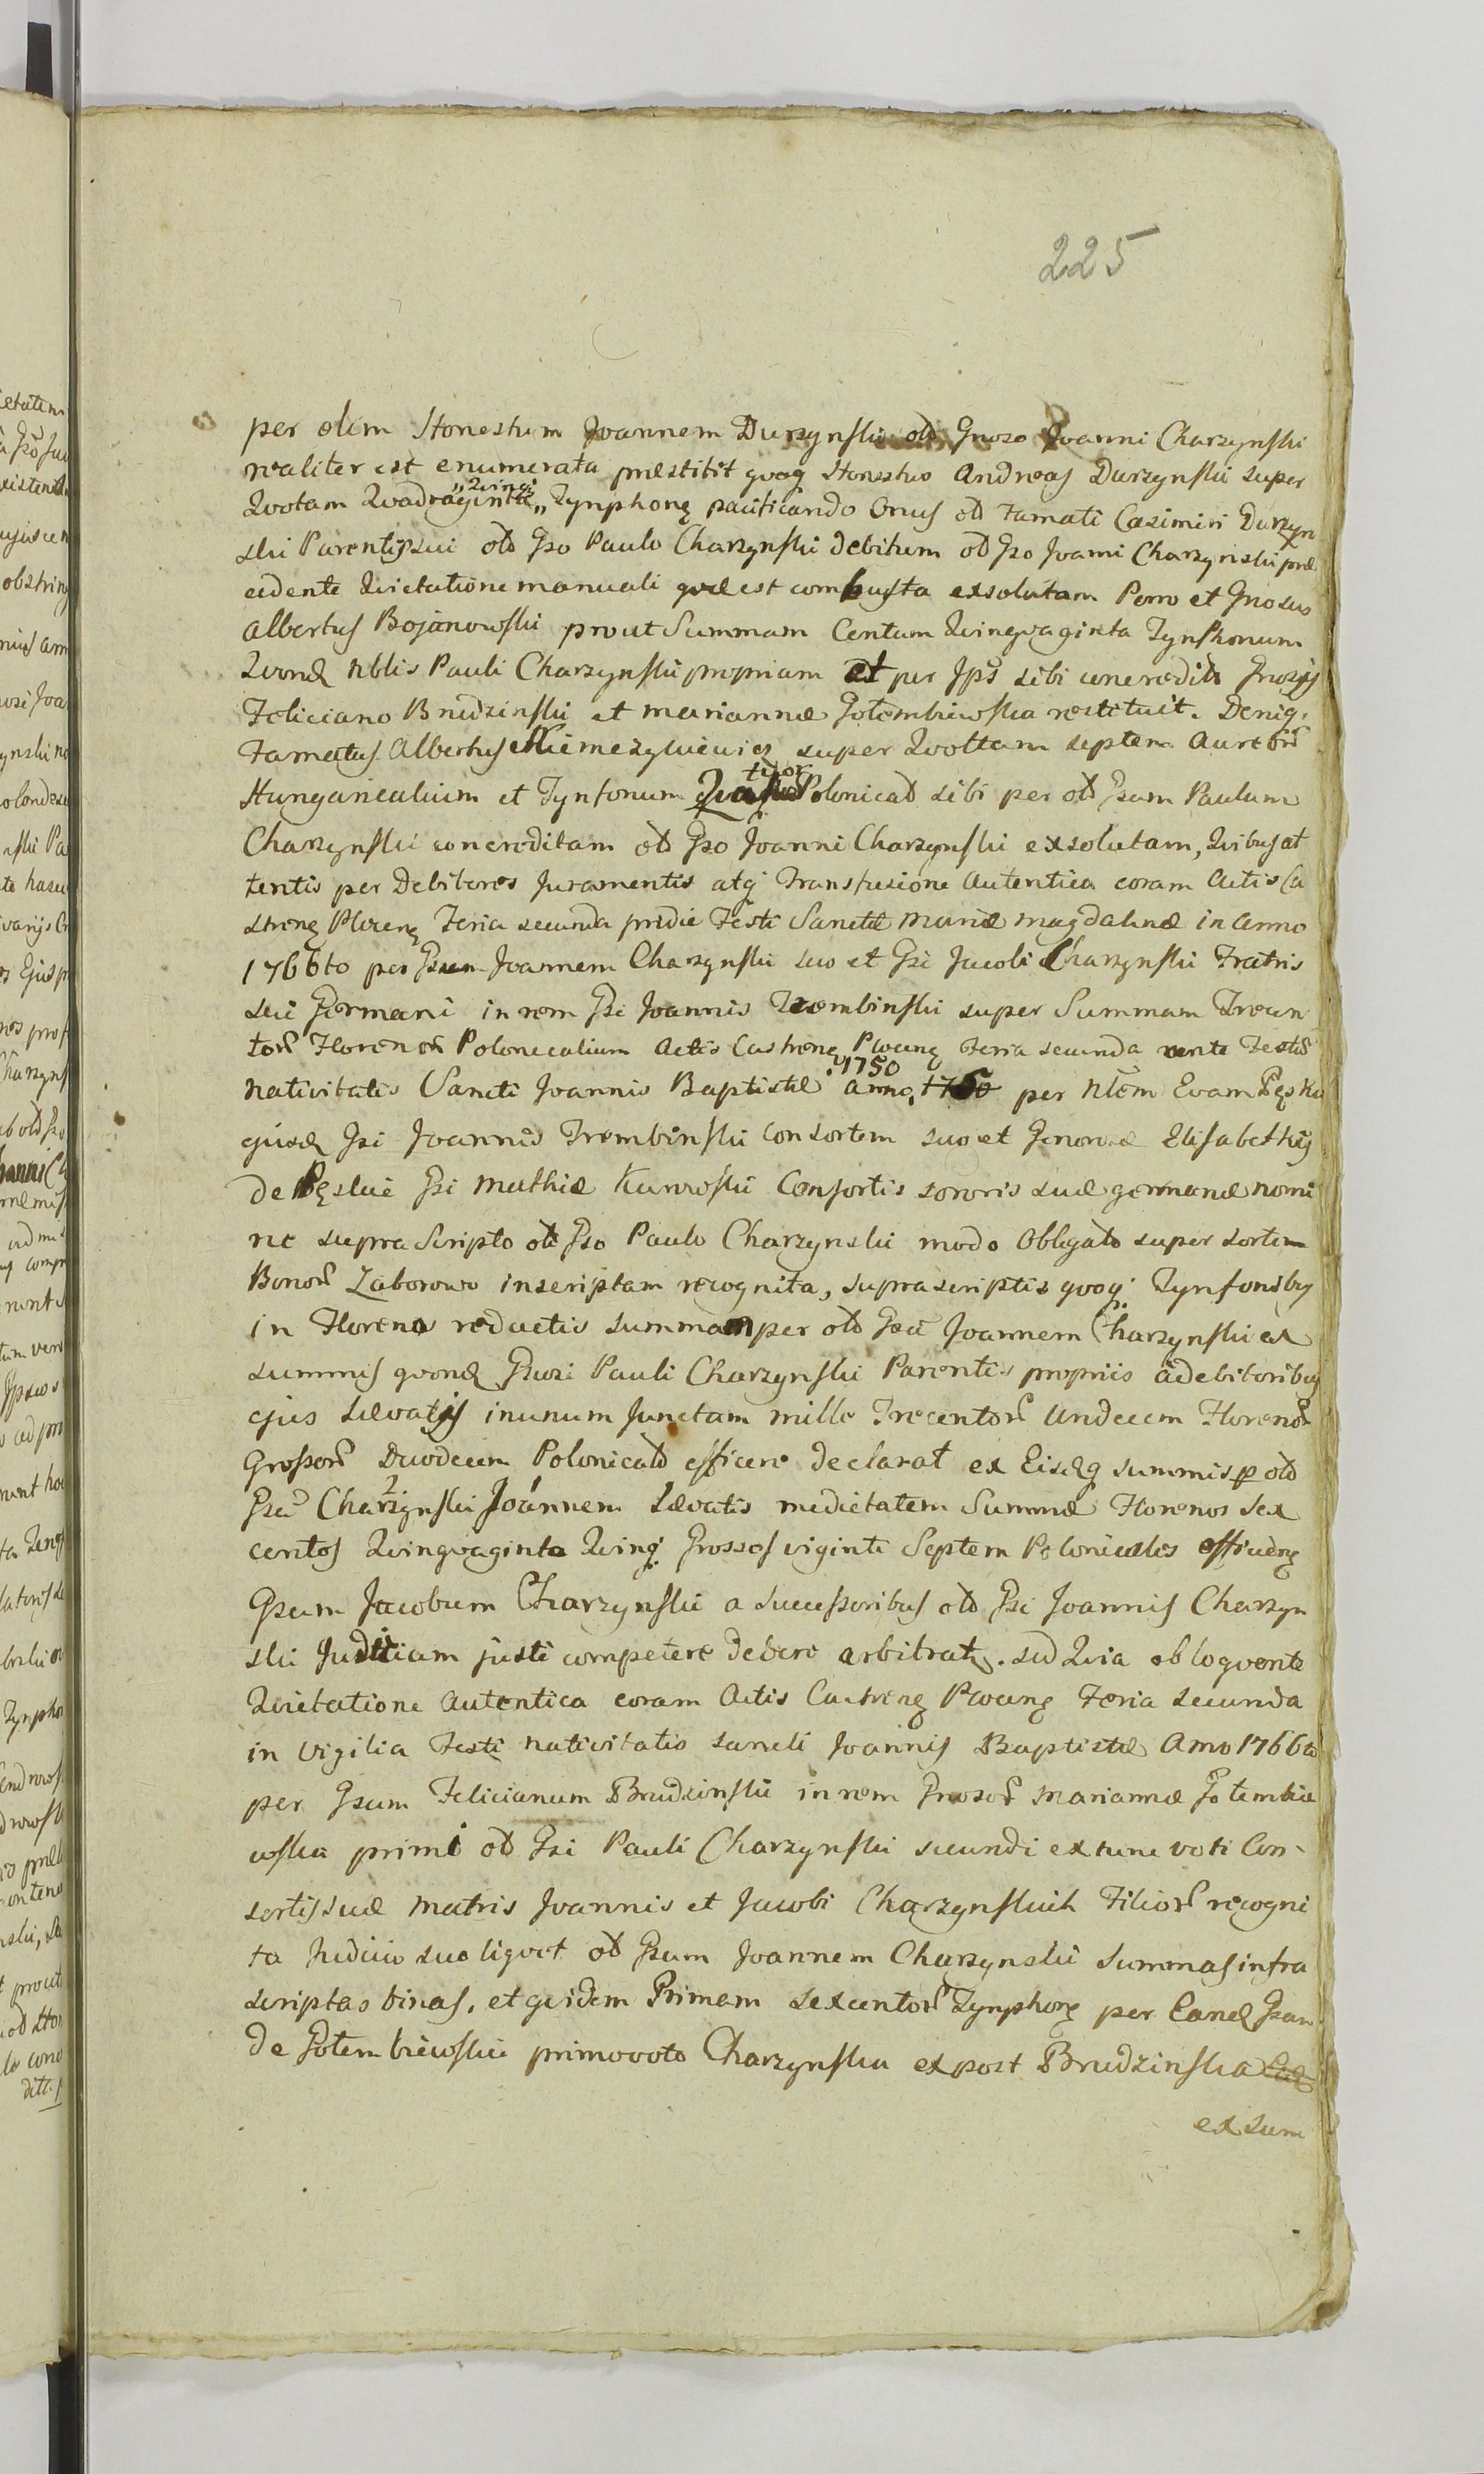 225
per olim Honestum Joannem Durzynski old Gnoso Joanni Charzynski
realiter est enumerata præstitit qvoq Honestus Andreas Durzynski super
Qvotam Qvadraginta „Qvinq„ Tynphonę pacificando Onus od Famati Casimiri Durzyn
ski Parentis sui old Gso Paulo Charzynski debitum od Gso Joanni Charzynski præ
cedente Qvietatione manuali qvæ est combusta exsolutam Porro et Gnosus
Albertus Bojanowski prout Summam Centum Qvinqvaginta Tynfkonum
Qvond Nblis Pauli Charzynski propriam et per Jps sibi concredit Gnosis
Feliciano Brudzinski et Mariannæ Gołembiewska restituit. Deniq.
Famatus Albertus super Qvottam septem Aureor
Hungaricalium et Tynfonum Qvatuor Polonical sibi per old Gsum Paulum
Charzynski concreditam old Gso Joanni Charzynski exsolutam, Qvibus at
tentis per Debitores Juramentis atq Transfusione Autentica coram Actis Ca
streng Plocen Feria secunda pridie Festi Sanctæ Mariæ Magdalenæ in Anno
1766to per Gsum Joannem Charzynski suo et Gsi Jacobi Charzynski Fratris
sui Germani in rem Gsi Joannis Trembinski super Summam Trecen
tor Florenor Polonicalium Actis Castreng Feria secunda ante Festu
Nativitatis Sancti Joannis Baptistæ Anno 1750 per Nlem Evam Pęska
ejusd Gsi Joannis Trembinski Consortem suo et Generosæ Elisabethis
de Pęskie Gsi Mathiæ Kunowski Consortis sororis suæ germanæ nomi
ne supra Scripto old Gso Paulo Charzynski modo Obligato super sortem
Bonor Zaborowo inscriptam recognita, suprascriptis qvoq Tynfonibus
in Florenos reductis summam per old Gsu Joannem Charzynski ex
summis qvond Gnosi Pauli Charzynski Parentis propriis a debitoribus
ejus Lævatis in unum Junctam mille Trecentor Undecim Florenor
Grossor Duodecim Polonicald efficere declarat ex Eisdg summis p old
Gsu Charzynski Joannem Lævatis medietatem Summæ Florenos Sex
centos Qvinqvaginta Qvinq Grossos viginti Septem Polonicales efficieng
Gsum Jacobum Charzynski a Successoribus old Gsi Joannis Charzyn
ski Juditiam juste competere debere arbitratq. sed Qvia obloqvente
Qvietatione Autentica coram Actis Castreng Feria Secunda
in Vigilia Festi Nativitatis Sancti Joannis Baptistæ Anno 1766to
per Gsum Felicianum Brudzinski in rem Gnosor Mariannæ Gołembie
wska primi od Gsi Pauli Charzynski secundi ex tunc voti Con-
sortis suæ Matris Joannis et Jacobi Charzynskich Filior recogni
ta Judicio suo liqvet od Gsum Joannem Charzynski Summas infra
scriptas binas, et qvidem Primam sexcentor Tynphonę per Eand Gsam
de Gołembiewskie primovoto Charzynska ex post Brudzinska
ex sum